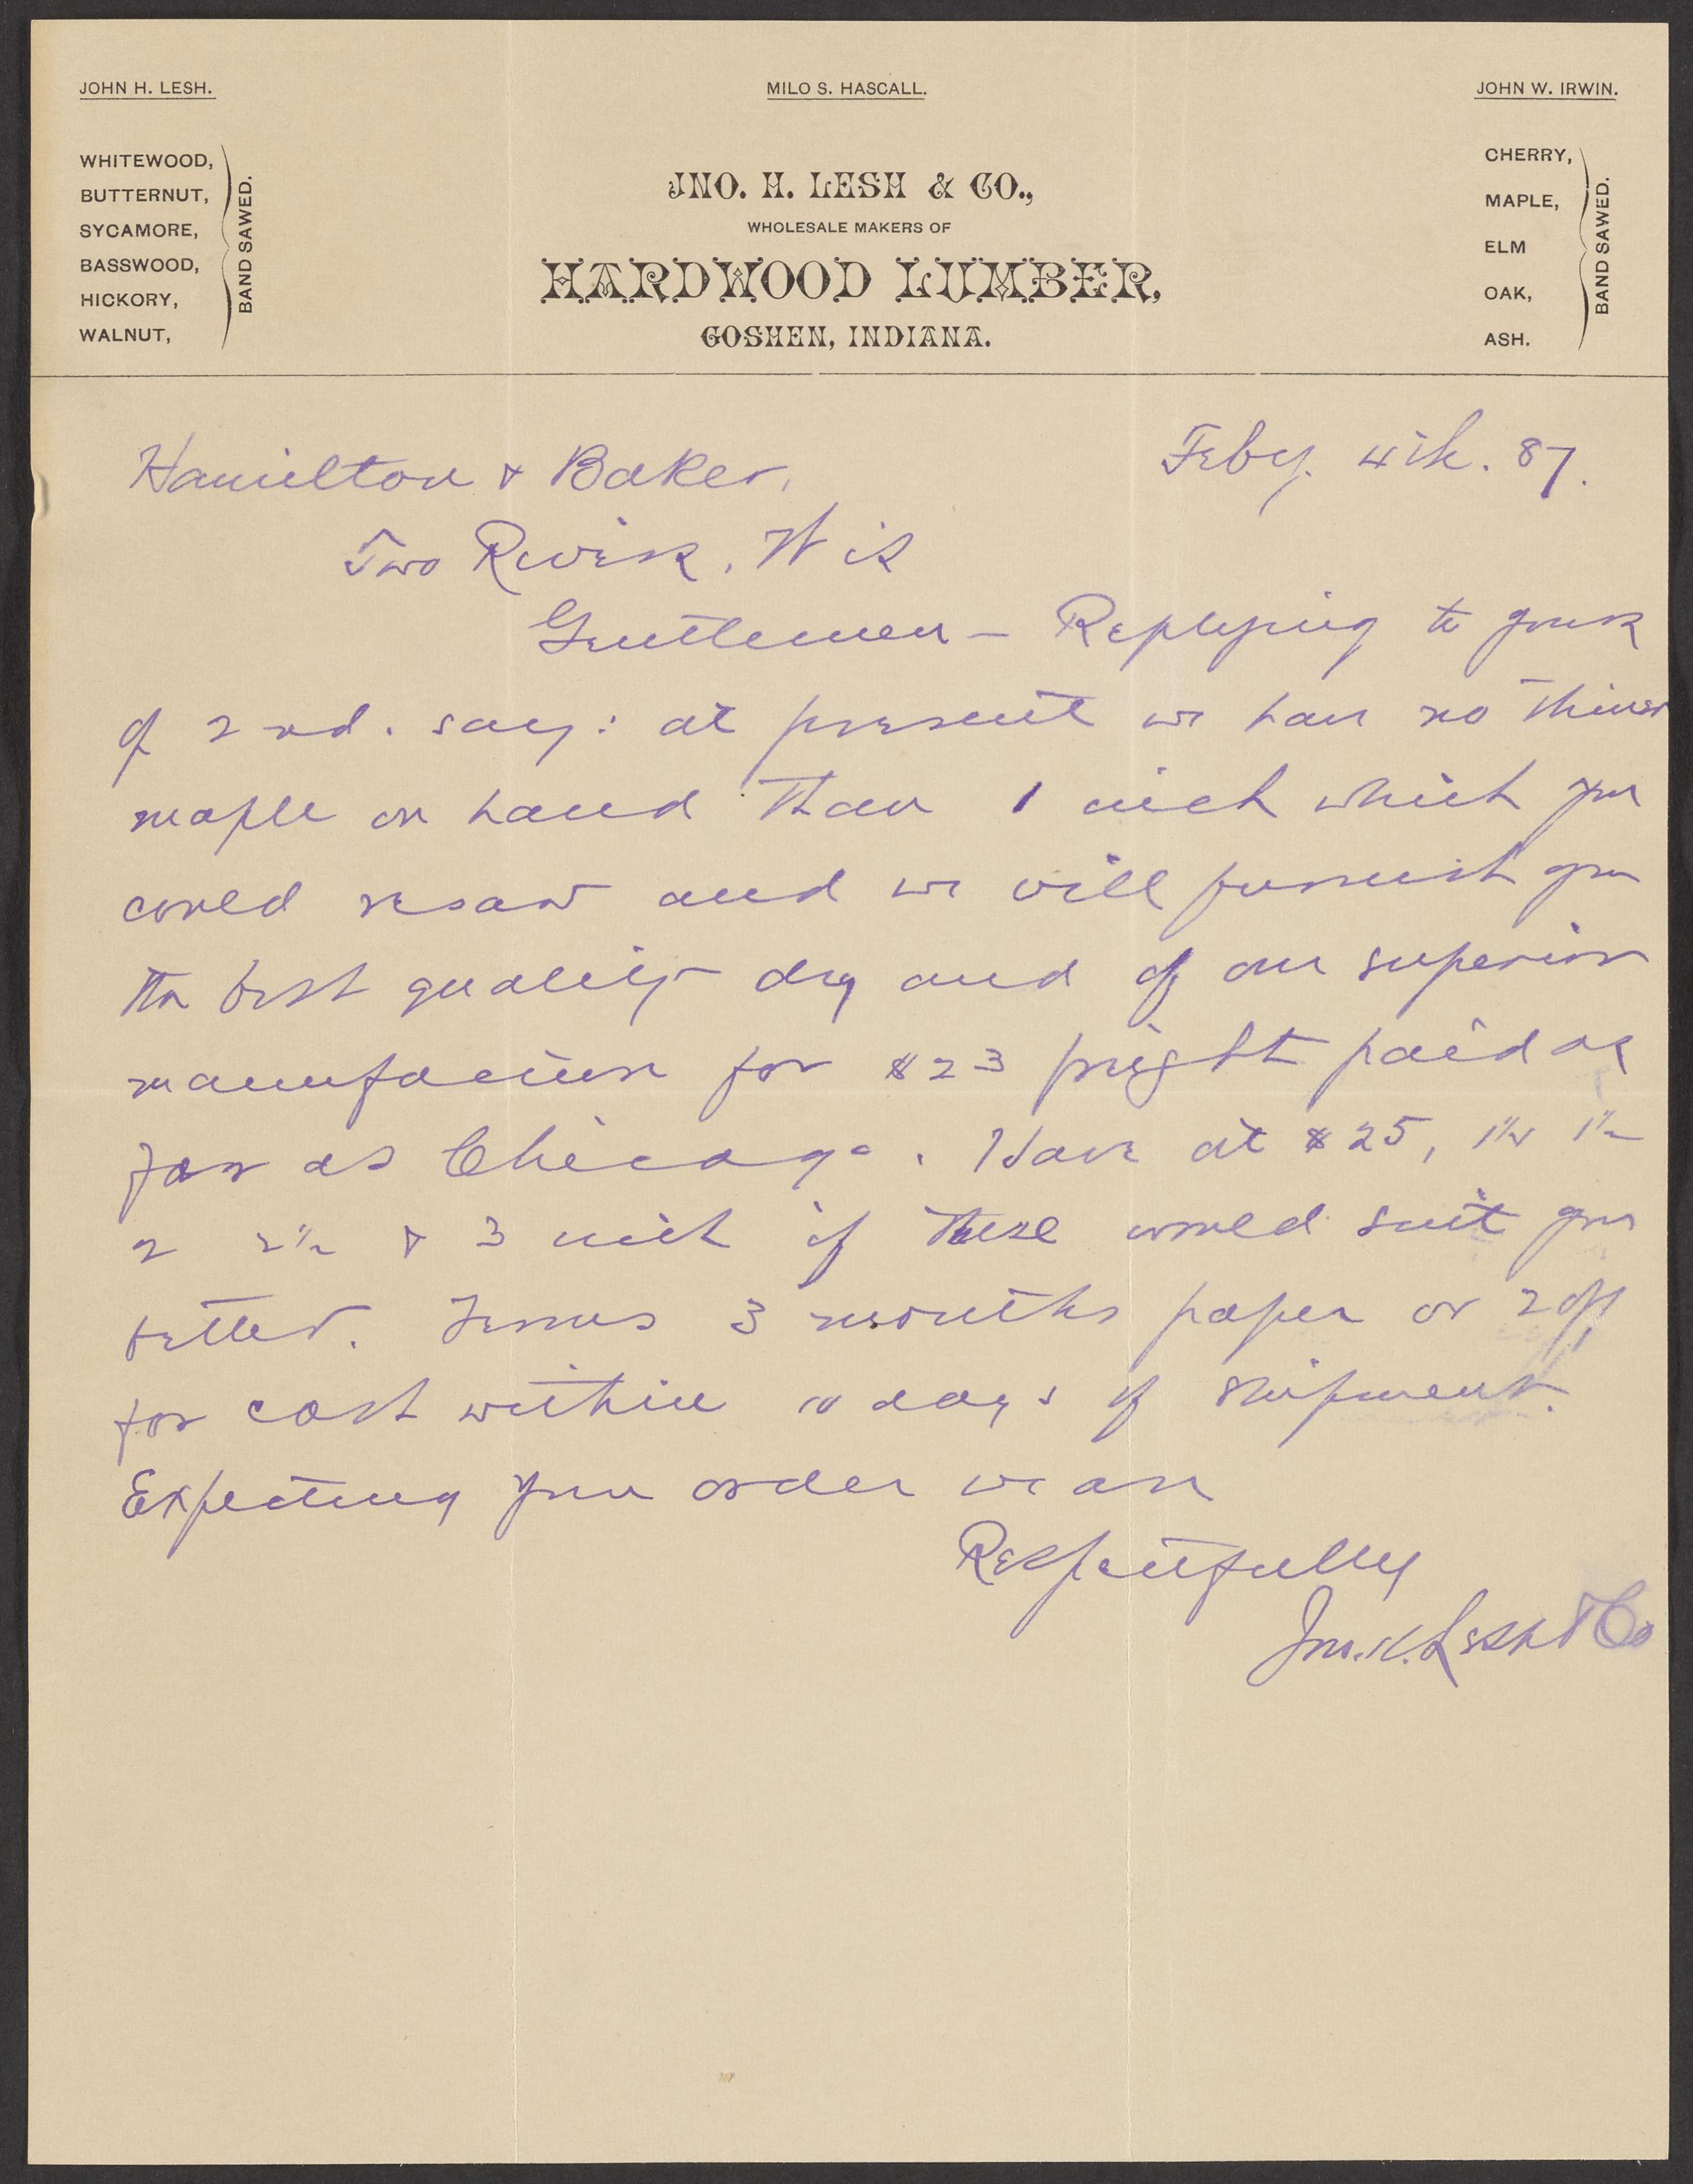 JOHN H. LESH. MILO S. HASCALL. JOHN W. IRWIN.
WHITEWOOD,
BUTTERNUT,
SYCAMORE,
BASSWOOD,
HICKORY,
WALNUT,
BAND SAWED.
JNO. H. LESH & CO.,
WHOLESALE MAKERS OF
HARDWOOD LUMBER,
GOSHEN, INDIANA.
CHERRY,
MAPLE,
ELM
OAK,
ASH.
BAND SAWED.
Feby. 4th. 87.
Hamilton & Baker,
Two Rivers, Wis
Gentlemen – Replying to yours
of 2nd. say: at present we have no thinner
maple on hand than 1 inch which you
could resaw and we will furnish you
the best quality dry and of our superior
manufacture for $23 freight paid as
far as Chicago. Have at $25, 1¼ 1½
2 2½ & 3 inch if these would suit you
better. Terms 3 months paper or 2 off
for cash within 10 days of shipment.
Expecting your order we are
Respectfully
Jno. H. Lesh & Co